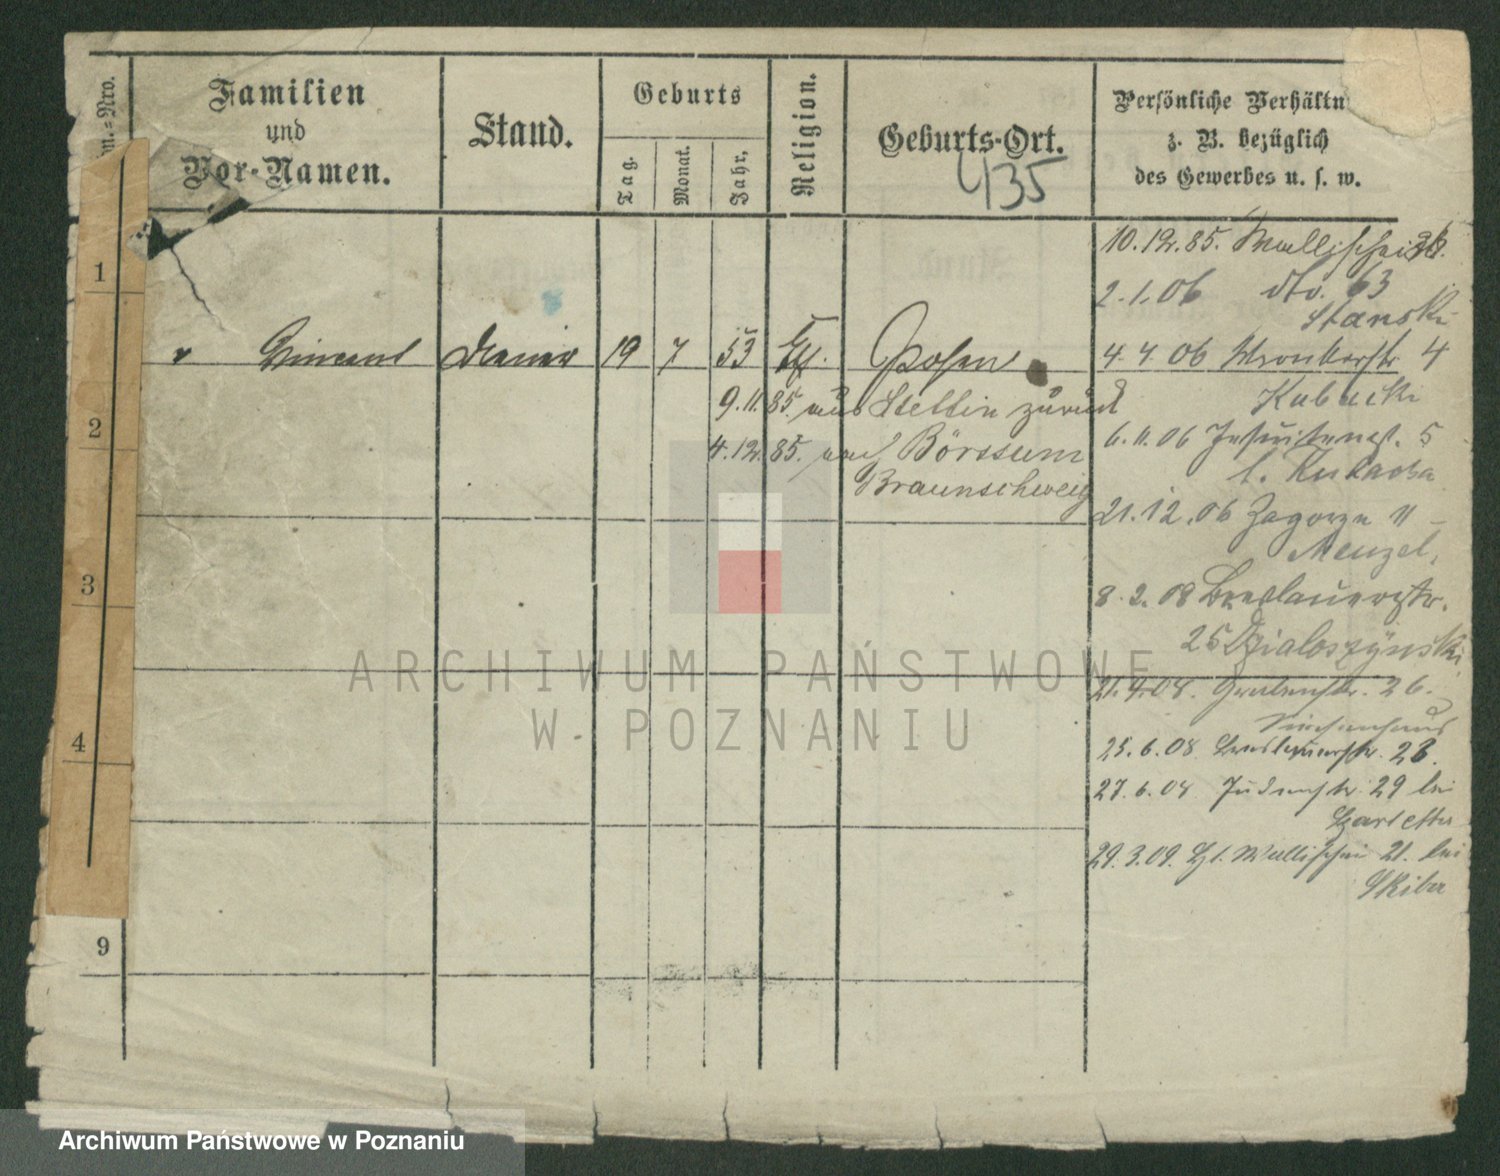 Fam.=Nro.
Familien
und
Vor-Namen.
Stand.
Geburts
Tag.
Monat.
Jahr,
Religion.
Geburts-Ort.
435
Persönliche Verhältn
z. B. bezüglich
des Gewerbes u. s. w.
1
2
3
4
9
Vincent
19 7 53
Posen
9.11.85. aus Stettin zurück
4.12.85. nach Börssum
Braunschweig
10.12.85. Wallischei
2.1.06 dto. 63
Stanski
4.4.06 Wronkerstr 4
Kubacki
6.11.06 Jesuitenst. 5
21.12.06 Zagorze 11
Menzel,
8.2.08 Breslauerstr.
25 Dzialoszynski
21.4.08. Grabenstr. 26.
Siechenhaus
25.6.08 Breslauerstr. 28.
27.6.08 Judenstr. 29 bei
29.3.09. Wallischei 21. bei
Skiba
ARCHIWUM PAŃSTWOWE
W POZNANIU
Archiwum Państwowe w Poznaniu